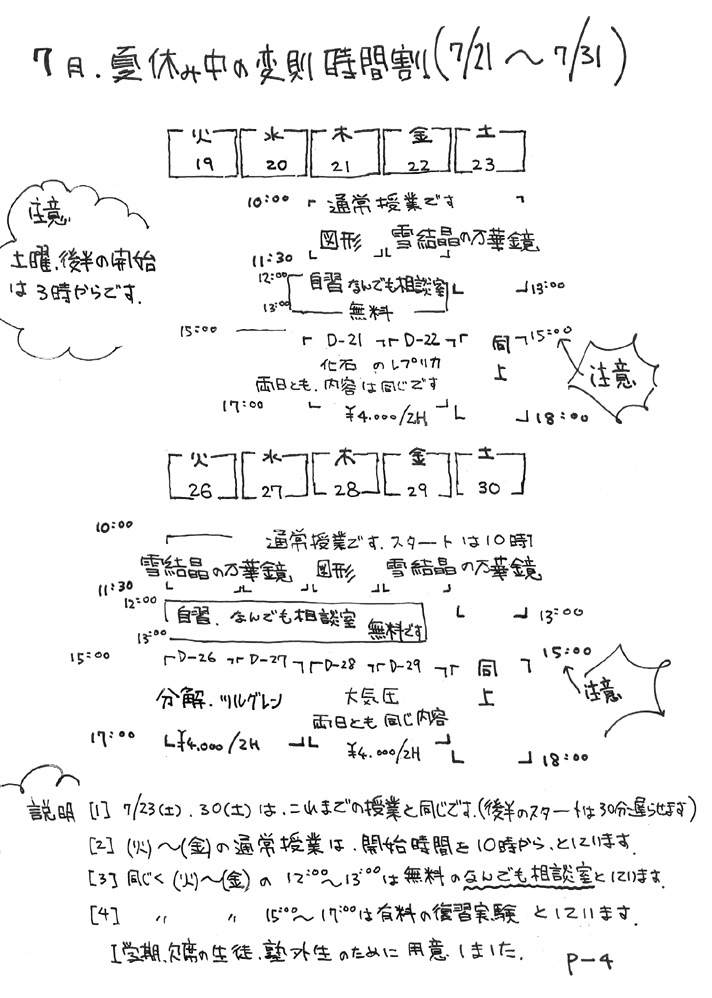 7月.夏休み中の変則時間割(7/21〜7/31)
火 水 木 金 土
19 20 21 22 23
10:00 「通常授業です 」
注意
土曜.後半の開始
は3時からです.
図形 雪結晶の万華鏡
11:30
12:00 自習 なんでも相談室 13:00
13:00 無料
15:00 D-21 D-22 同上 15:00
注意
化石 のレプリカ
両日とも.内容は同じです
17:00 ¥4.000/2H 18:00
火 水 木 金 土
26 27 28 29 30
10:00 通常授業です.スタートは10時
雪結晶の万華鏡 図形 雪結晶の万華鏡
11:30
12:00 自習.なんでも相談室 無料です 13:00
13:00
15:00 D-26 D-27 D-28 D-29 同上 15:00
注意
分解.ツルグレン 大気圧
両日とも同じ内容
17:00 ¥4.000/2H ¥4.000/2H 18:00
説明 [1] 7/23(土).30(土)は.これまでの授業と同じです.(後半のスタートは30分遅らせます)
[2] (火)〜(金)の通常授業は.開始時間を10時から.としています.
[3] 同じく(火)〜(金)の 12:00〜13:00は無料のなんでも相談室としています.
[4] 〃 〃 15:00〜17:00は有料の復習実験 としています.
1学期.欠席の生徒.塾外生のために用意しました.
P-4